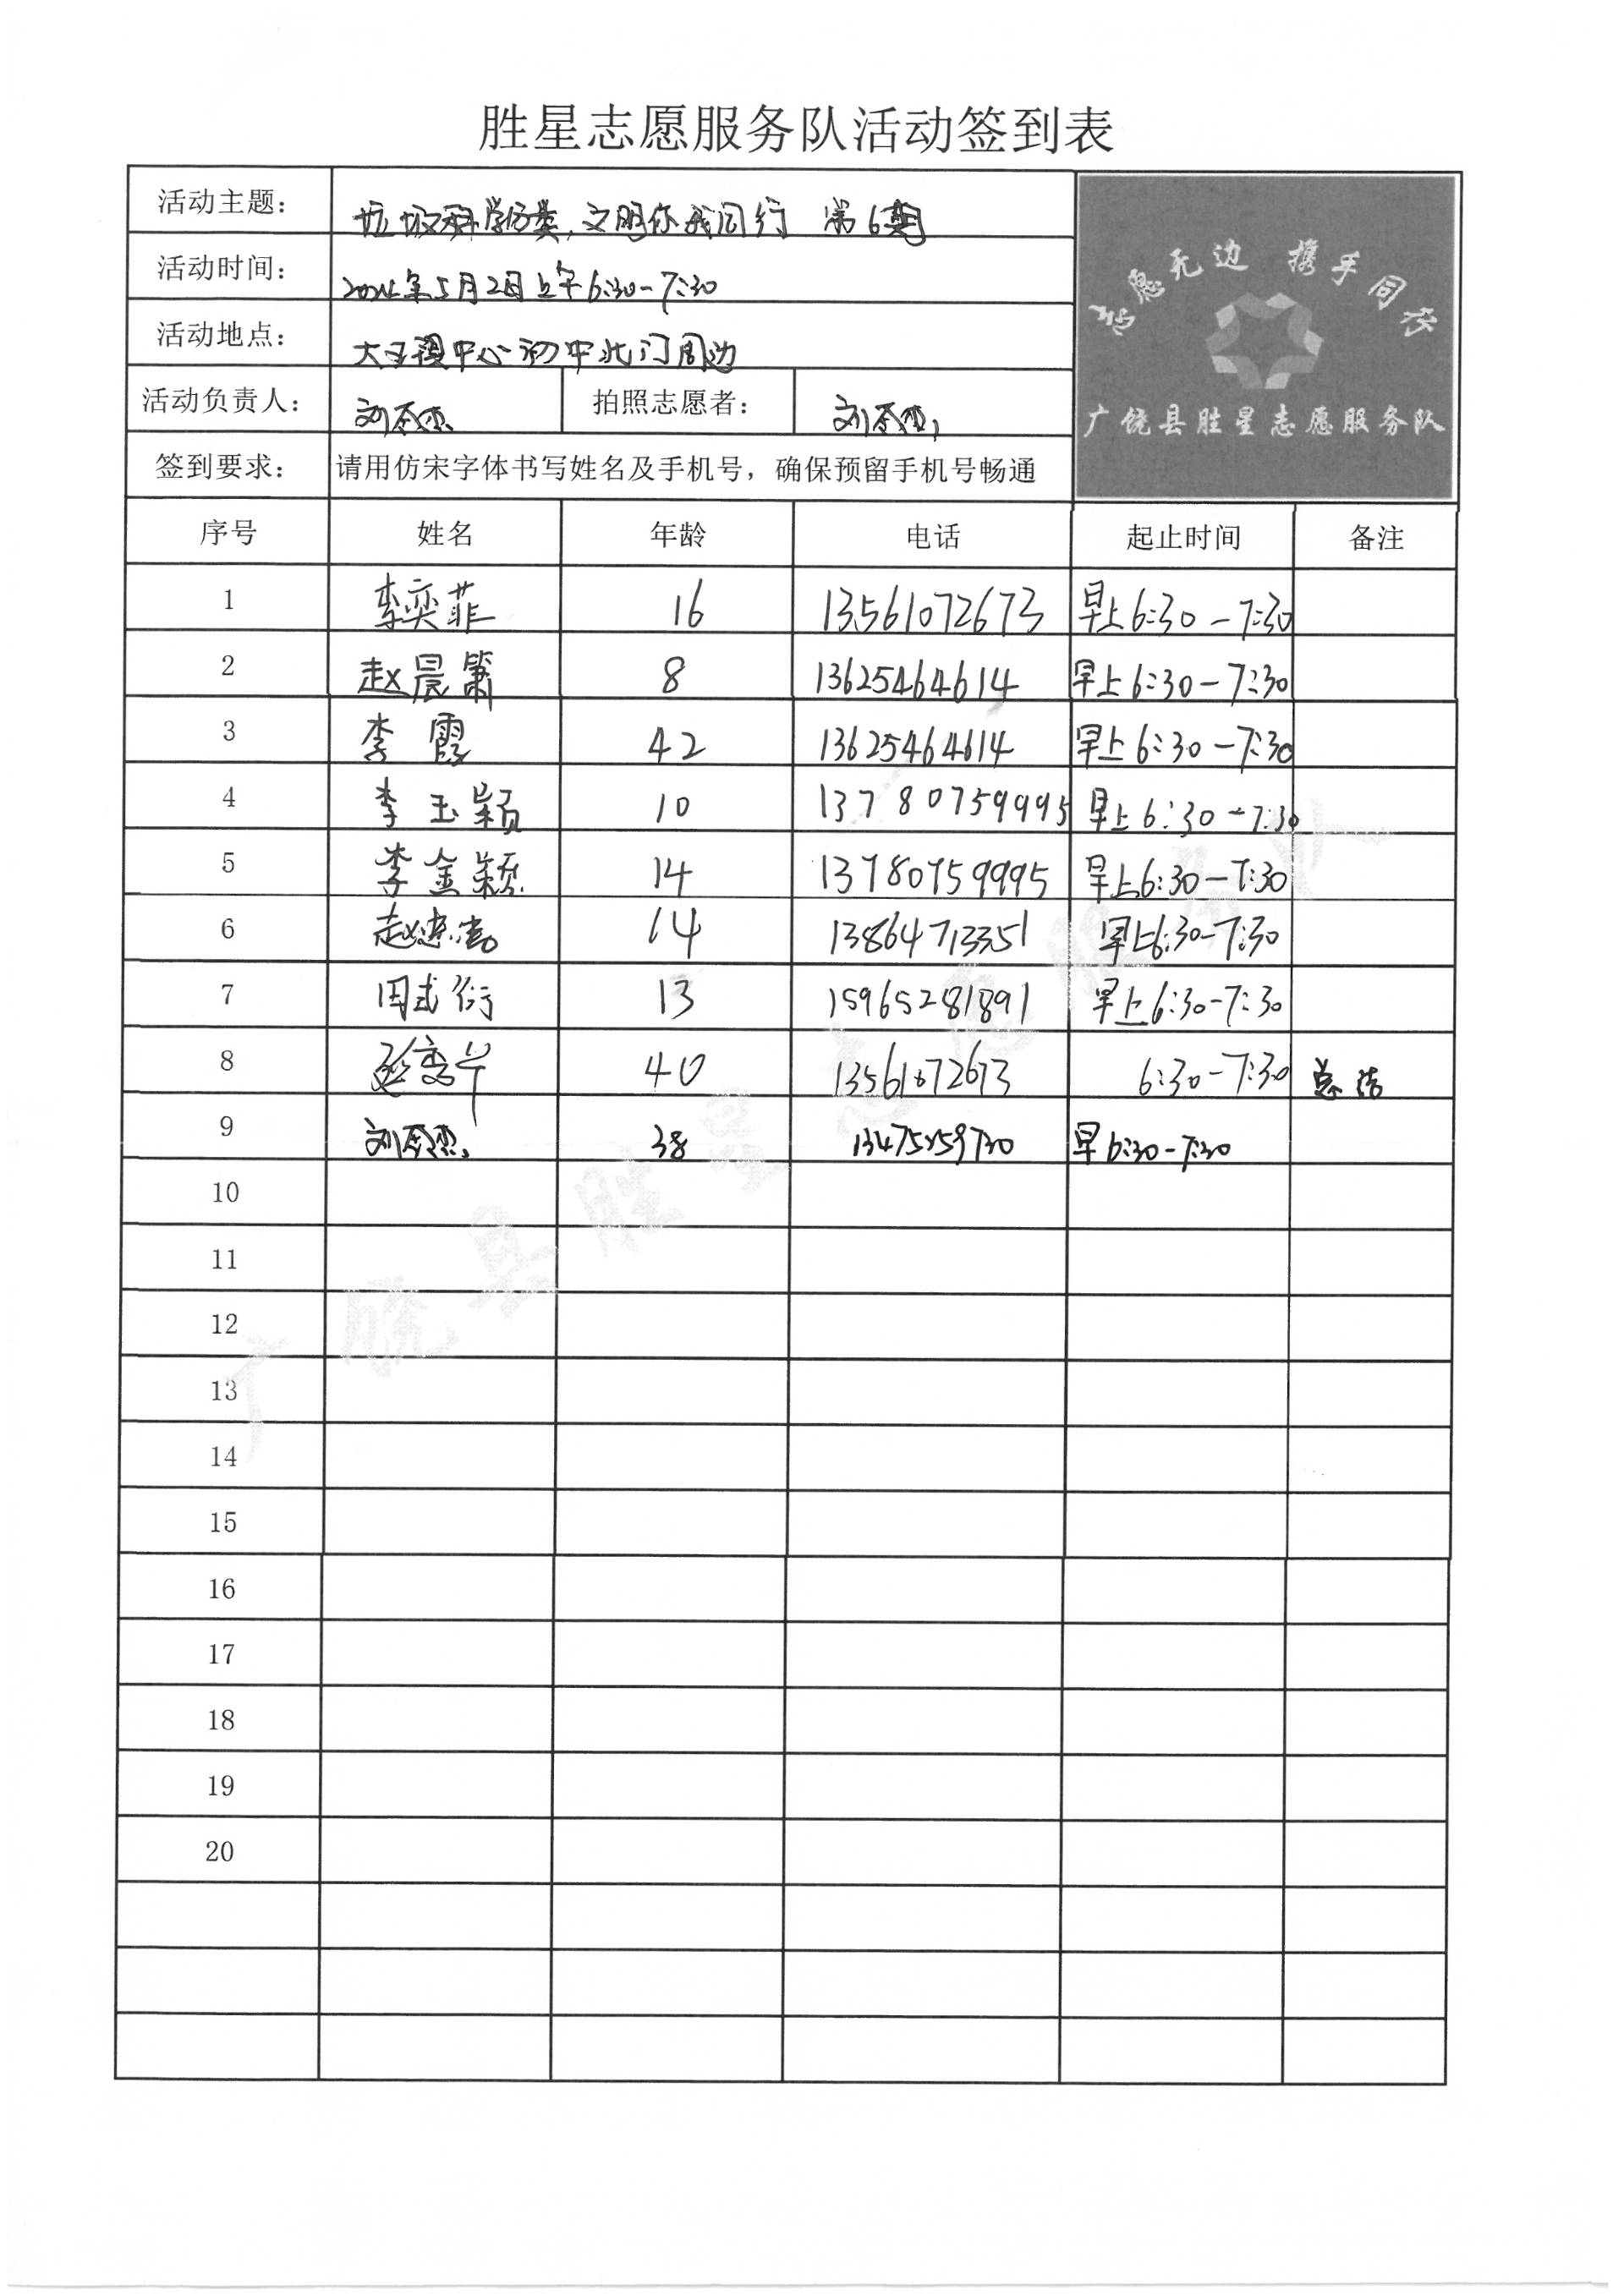 胜星志愿服务队活动签到表
活动主题： 垃圾科学分类，文明你我同行 第6期
活动时间： 2024年5月2日上午6:30-7:30
活动地点： 大王镇中心初中北门周边
志愿无边 携手同行
广饶县胜星志愿服务队
活动负责人： 刘 拍照志愿者： 刘
签到要求： 请用仿宋字体书写姓名及手机号，确保预留手机号畅通
序号 姓名 年龄 电话 起止时间 备注
1 李奕菲 16 13561072673 早上6:30-7:30
2 赵晨箫 8 13625464614 早上6:30-7:30
3 李霞 42 13625464614 早上6:30-7:30
4 李玉颖 10 13780759995 早上6:30-7:30
5 李金颖 14 13780759995 早上6:30-7:30
6 赵 14 13864713351 早上6:30-7:30
7 周式衍 13 15965281891 早上6:30-7:30
8 40 13561072673 6:30-7:30 总结
9 刘 38 早6:30-7:30
10
11
12
13
14
15
16
17
18
19
20
广饶县胜星志愿服务队